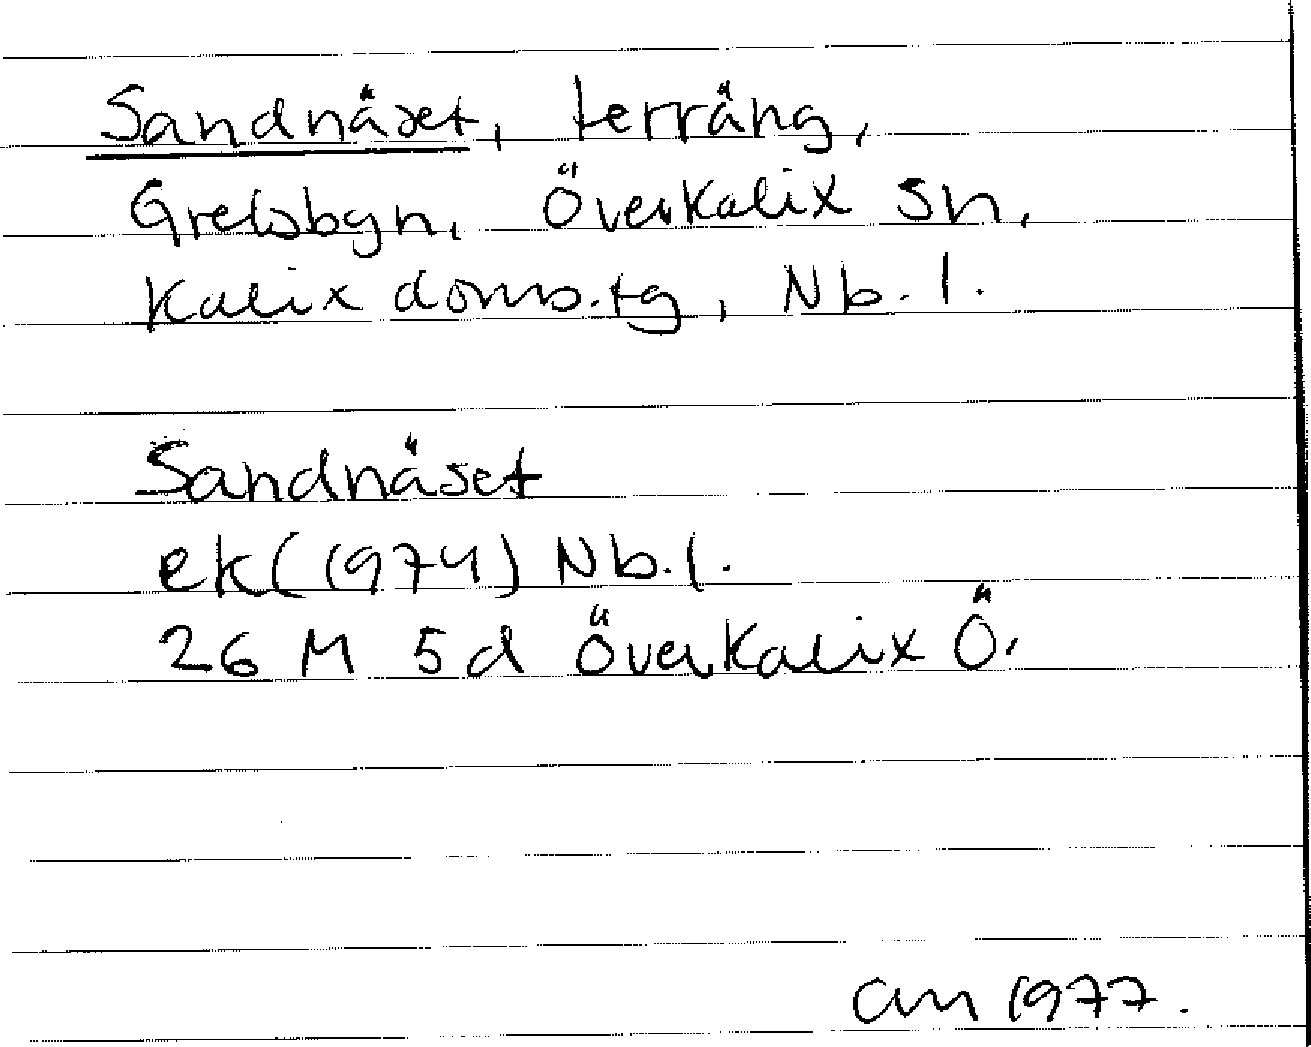 Sandnäset, terräng,
Grelsbyn, Överkalix sn,
Kalix doms.tg, Nb.l.
Sandnäset
ek (1974) Nb.l.
26 M 5d Överkalix Ö.
am 1977.